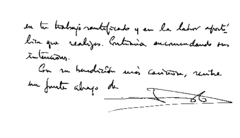 en tu trabajo santificado y en la labor apostó
lica que realizas. Continúa encomendando mis
intenciones.
Con mi bendición más cariñosa, recibe
un fuerte abrazo de